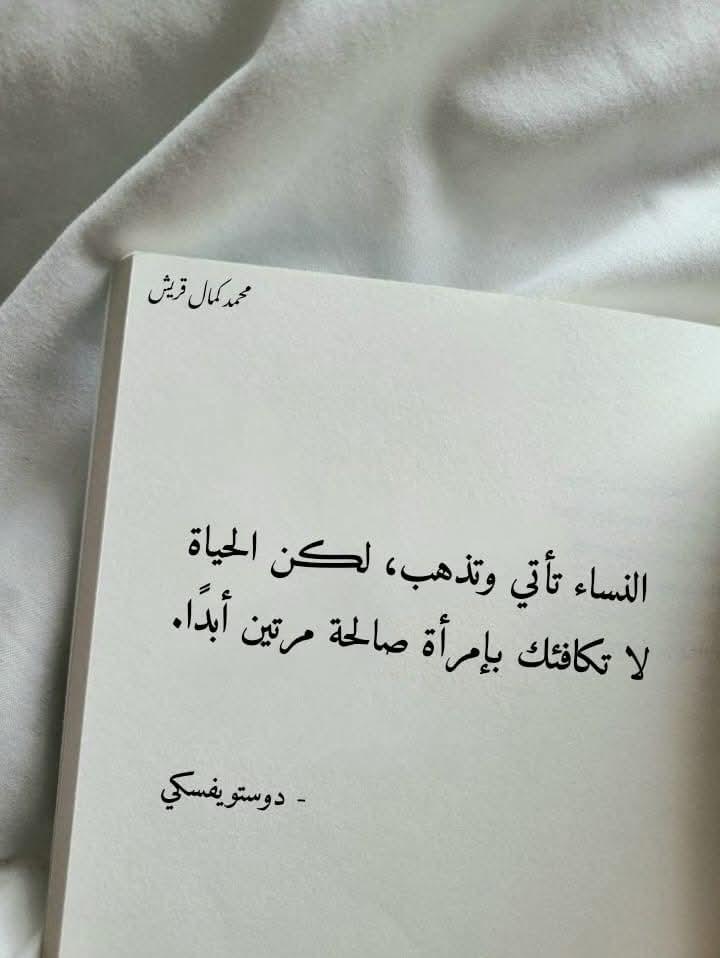 محمد كمال قريش
النساء تأتي وتذهب، لكن الحياة
لا تكافئك بإمرأة صالحة مرتين أبدًا.
- دوستويفسكي